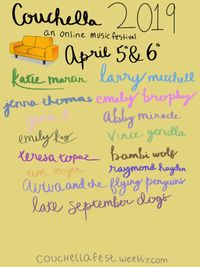 Couchella 2019
an online music festival
April 5 & 6th
katie martin larry mitchell
jenna thomas emily brophy
abby miracle
emily kaye vince gerella
teresa topaz bambi wolf
raymond hayden
aviva and the flying penguins
late september dogs
couchellafest.weebly.com